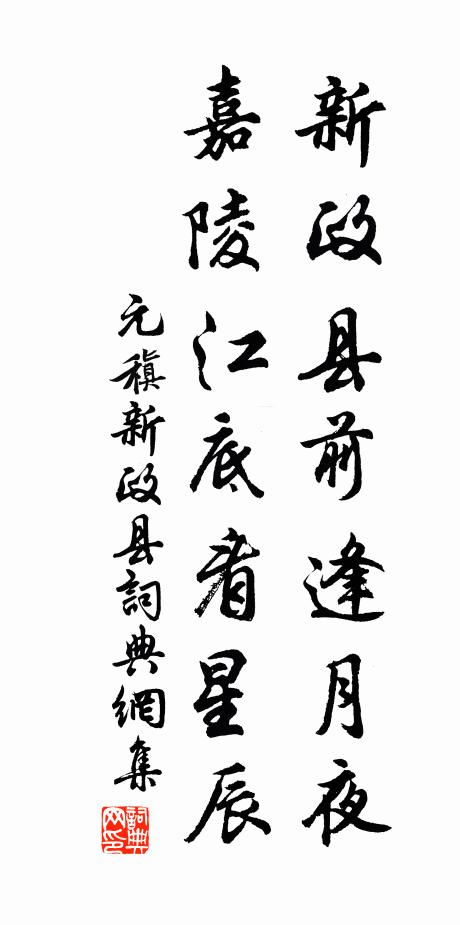 新政县前逢月夜
嘉陵江底看星辰
元稹新政县詞典網集
詞典網印